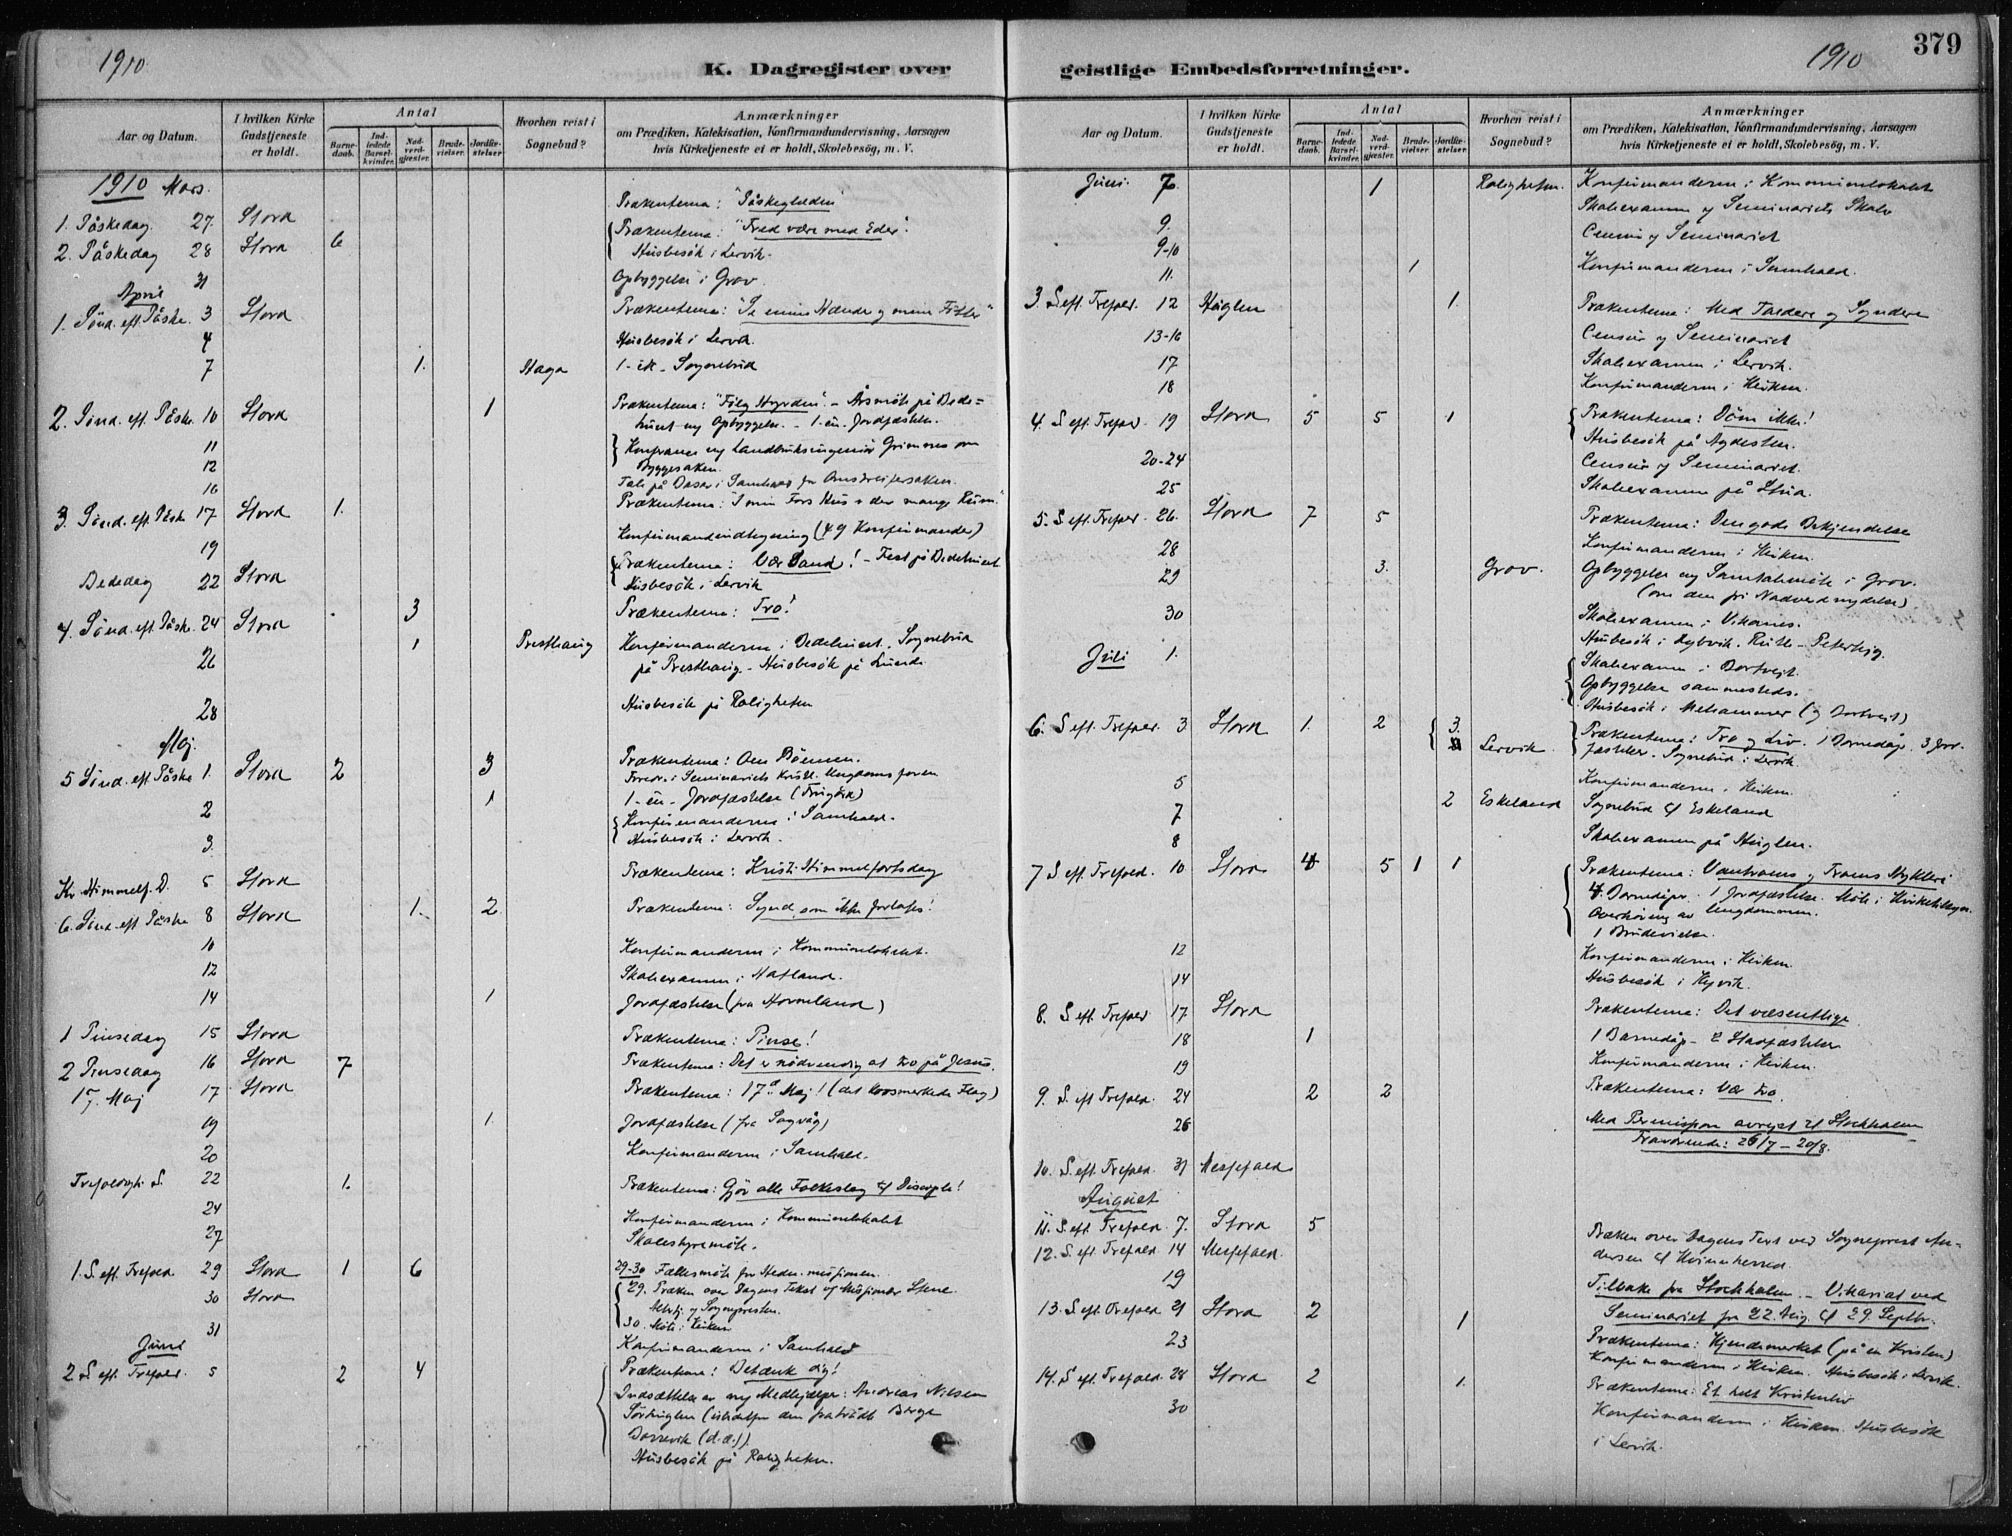 1910
K. Dagregister over
Aar og Datum.
I hvilken Kirke Gudstjeneste er holdt.
Antal
Barne-daab.
Ind-ledede Barsel-kvinder.
Nad-verd-gjester.
Brude-vielser.
Jordfæ-stelser
Hvorhen reist i Sognebud?
Anmærkninger
om Prædiken, Katekisation, Konfirmandundervisning, Aarsagen
hvis Kirketjeneste ei er holdt, Skolebesøg, m. V.
1910 Mars.
1. Påskedag. 27. Stord Prækentema: "Påskeglæden"
2. Påskedag 28 Stord 6 Prækentema: "Fred være med Eder".
Husbesök i Lervik.
31 Opbyggelse i Grov.
April
1. Sönd. eft. Påske. 3 Stord Prækentema: "Se mine Hænder og mine Fötter"
4 Husbesök i Lervik.
7 1. Haga 1- et - Sognebud
2. Sönd. eft. Påske 10 Stord 1 Prækentema: "Følg Hyrden". - Årsmöte på Bede=
huset og Opbyggelse. - 1- en - Jordfæstelse.
11 og Landbruksingeniör Grimnes om
12 Byggesaken.
16 Tale på Basar i Samhald for
3. Sönd. eft. Påske 17 Stord 1. Prækentema: "I min Fars Hus er der mange Rum."
19 Konfirmandindtegning (49 Konfirmander)
Bededag 22 Stord Prækentema: Vær Sand! - Fest på Bedehuset
Husbesök i Lervik
4. Sönd. eft. Påske. 24 Stord 3 Prækentema: Tro!
26 1 Presthaug Konfirmanderne i Bedehuset. Sognebud
på Presthaug - Husbesök på Lunde.
28 Husbesök på Roligheten
Maj.
5 Sönd. eft. Påske 1. Stord 2 3 Prækentema: Om Bönnen.
Foredr. i Seminariets Kristl. Ungdomsforen
2 1 1- en - Jordfæstelse
3. Konfirmanderne i Samhald.
Husbesök i Lervik.
Kr. Himmelf. D. 5 Stord Prækentema: Kristi Himmelfartsdag
6. Sönd. eft. Påske 8 Stord 1. 2 Prækentema: Synd, som ikke forlates!
10 Konfirmanderne i Kommunelokalet.
12 Skoleexamen i Hatland.
14 1 Jordfæstelse (fra Hovneland)
1 Pinsedag 15 Stord Prækentema: Pinse!
2 Pinsedag 16 Stord 7 Prækentema: Det er nödvendig at tro på Jesus.
17. Maj 17 Stord Prækentema: 17de Maj! (det korsmerkede Flag)
19 1. Jordfæstelse (fra Sagvåg)
20 Konfirmanderne i Samhald.
Trefoldigh. S. 22 1. Prækentema: Gjör alle Folkeslag til Disciple!
24 Konfirmanderne i Kommunelokalet
27 Skolestyremöte.
1. S. eft. Trefold. 29 Stord 1 6 29-30 Fællesmöte for Hedn. missionen.
30 Stord 29. Præken over Dagens Tekst af Missionær Stene.
Altertj. af Sognepresten.
30. Möte i Kirken
31 Konfirmanderne i Samhald
Juni
2 S. eft. Trefold. 5 2 4 Prækentema: Betænk dig!
Indsættelse av ny Medhjælper: Andreas Nilsen
Sörhuglen (istedetfor den fratrådte Börge
Dorrevik (d.æ.)).
Husbesök på Roligheten.

1910
379
geistlige Embedsforretninger.
Aar og Datum.
I hvilken Kirke Gudstjeneste er holdt.
Antal
Barne-daab.
Ind-ledede Barsel-kvinder.
Nad-verd-gjester.
Brude-vielser.
Jordfæ-stelser.
Hvorhen reist i Sognebud?
Anmærkninger
om Prædiken, Katekisation, Konfirmandundervisning, Aarsagen
hvis Kirketjeneste ei er holdt, Skolebesøg, m. V.
Juni. 7. 1 Roligheten. Konfirmanderne i Kommunelokalet
9. Skoleexamen og Seminariets Skole
9-10 Censur og Seminariet
11. 1 Konfirmanderne i Samhald.
3. S. eft. Trefold. 12 Huglen 1. Prækentema: Med Toldere og Syndere
13-16 Censur og Seminariet
17 Skoleexamen i Lervik.
18 Konfirmanderne i Kirken.
4. S. eft. Trefold. 19 Stord 5 5 1 Prækentema: Döm ikke!
Husbesök på Agdesten.
20-24 Censur og Seminariet.
25 Skoleexamen på Hua.
5. S. eft. Trefold. 26. Stord 7 5 Prækentema: Den gode Bekjendelse
28 Konfirmanderne i Kirken.
29 3. Grov. Opbyggelse og Samtalemöte i Grov.
(om den fri Nadverdnydelse).
30 Skoleexamen i Vikanes.
Husbesök i Rybvik.
Juli 1. Skoleexamen i Dortveit.
Opbyggelse sammesteds.
Husbesök i Mehammer (og Dortveit)
6. S. eft. Trefold. 3 Stord 1. 2 3. Lervik Prækentema: Tro og Liv. 1 Barnedåp. 3 Jor-
fæstelser. Sognebud i Lervik.
5 Konfirmanderne i Kirken.
7 2 Eskeland Sognebud til Eskeland
8 Skoleexamen på Huglen.
7 S. eft. Trefold. 10 Stord 4 5 1 1 Prækentema: Vantroens og Troens Nykler
4 Barnedåper. 1 Jordfæstelse. Möte i
Overhöring av Ungdommen.
1 Brudevielse.
12 Konfirmanderne i Kirken.
14 Husbesök i Hyvik.
8. S. eft. Trefold 17 Stord Prækentema: Det væsentlige
18 1 1 Barnedåp - 2
19 Konfirmanderne i Kirken.
9. S. eft. Trefold. 24 2 2 Prækentema: Vær tro.
26 Med Permission avreist til Stockholm
Fraværende: 26/7 - 20/8.
10. S. eft. Trefold. 31 Messefald
August
11. S. eft. Trefold. 7. Stord 5 Præken over Dagens Text ved Sogneprest An-
12. S. eft. Trefold. 14 Messefald. dersen til Kvinnherred.
19 Tilbake fra Stockholm. - Vikariat ved
Seminariet fra 22. Aug. til 29. Septbr.
13. S. eft. Trefold 21 Stord 2 1 Prækentema: Kjendemerket (på en Kristen)
23 Konfirmanderne i Kirken. Husbesök i Lervik.
14. S. eft. Trefold. 28 Stord 2 1. Prækentema: Et helt Kristenliv
30 Konfirmanderne i Kirken. Husbesök
i Lervik.